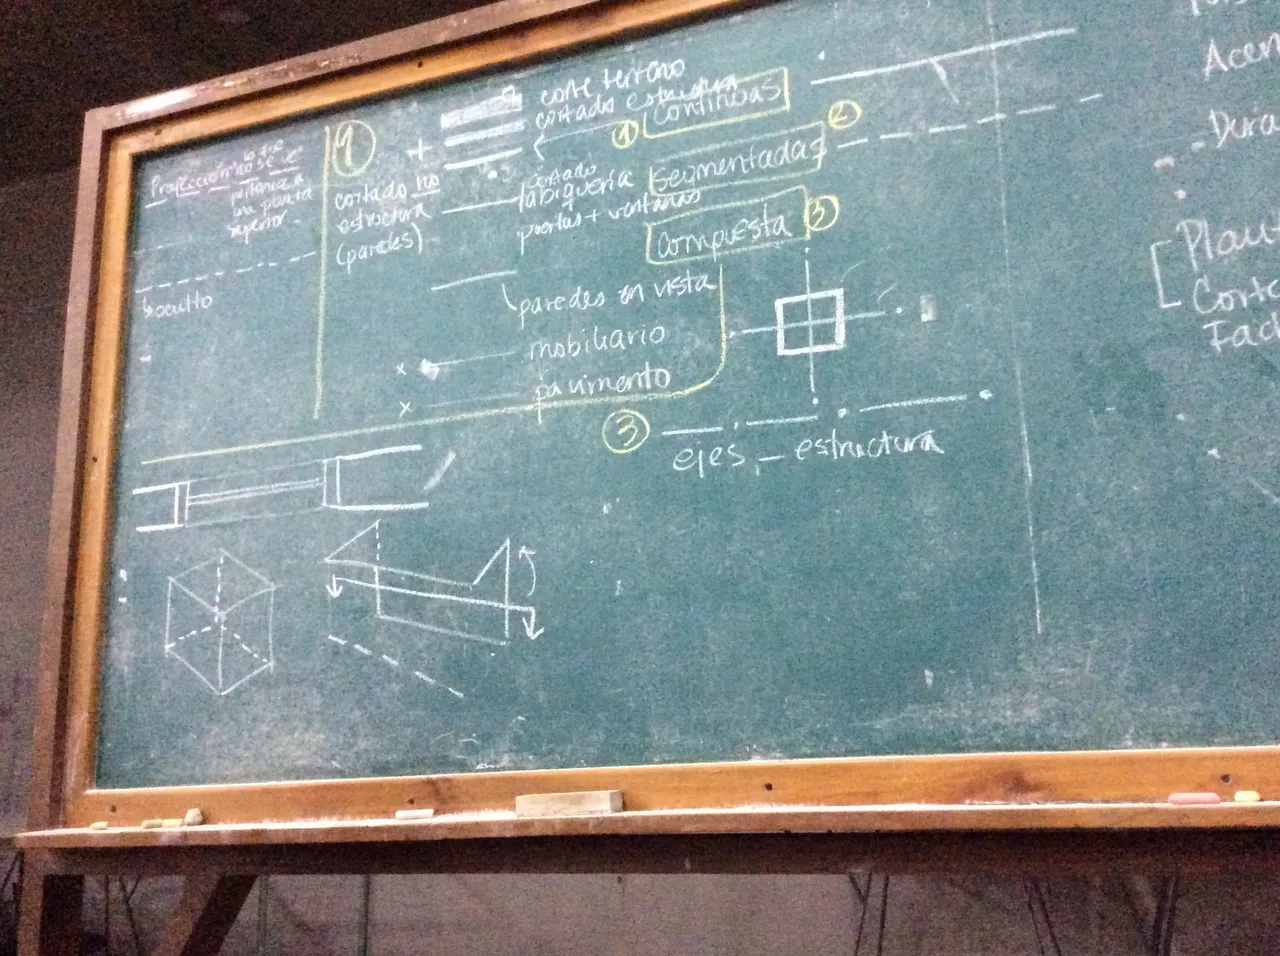 Proyección
no se ve
pertenece a
una planta
superior.
oculto
1
+
corte terreno
cortado estructura
cortado no
estructura
(paredes)
cortado
tabiquería
puertas + ventanas
paredes en vista
x
mobiliario
x
pavimento
1 Continuas
Segmentadas 2
Compuesta 3
3
ejes - estructura
Acen
- Dura
Corte